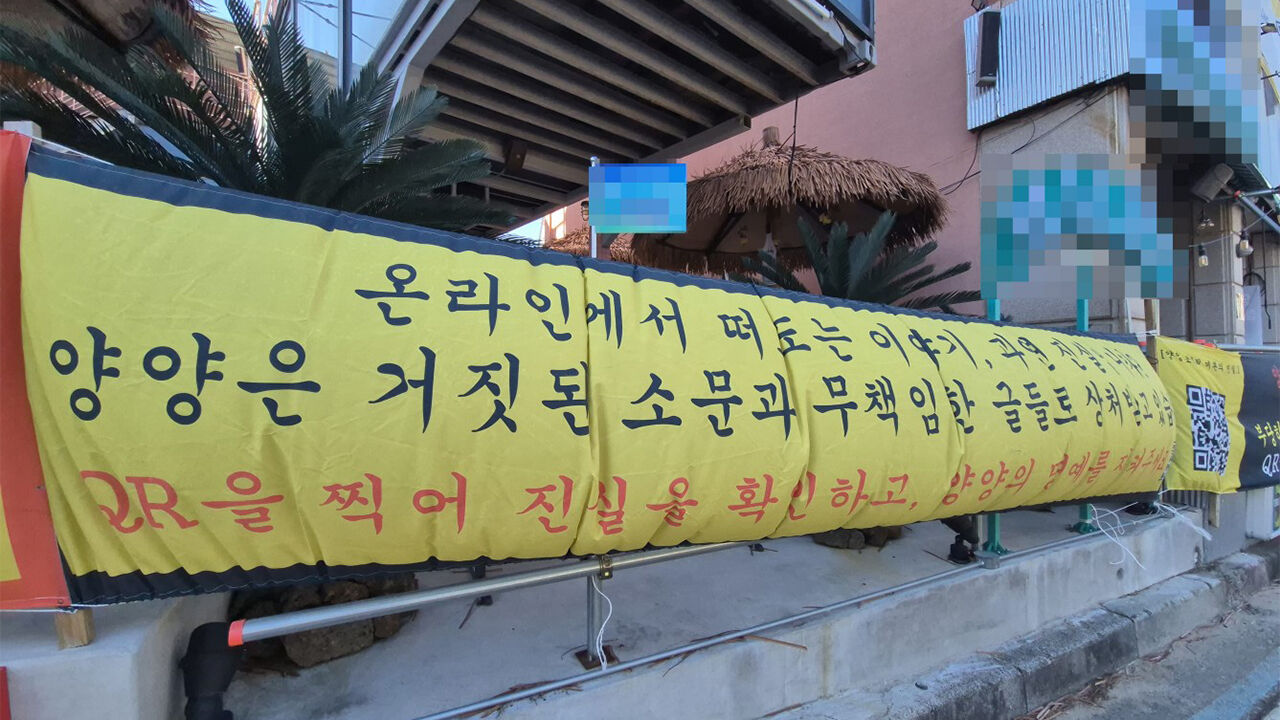 온라인에서 떠도는 이야기, 과연 진실
양양은 거짓된 소문과 무책임한 글들로 상처받고 있습
QR을 찍어 진실을 확인하고, 양양의 명예를 지켜주세요
QR